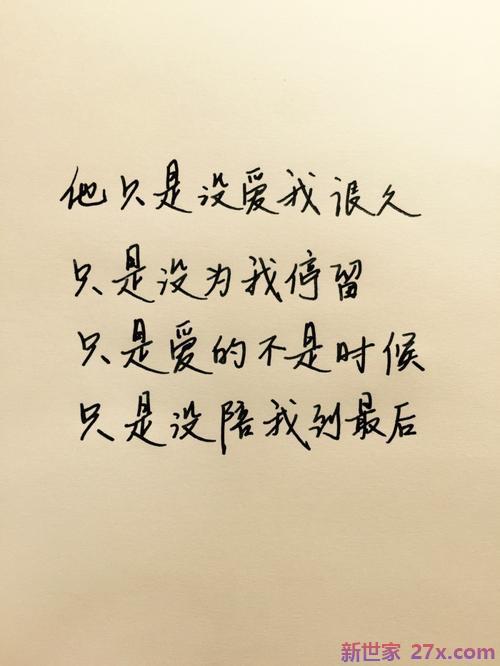 他只是没爱我很久
只是没为我停留
只是爱的不是时候
只是没陪我到最后
新世家 27x.com